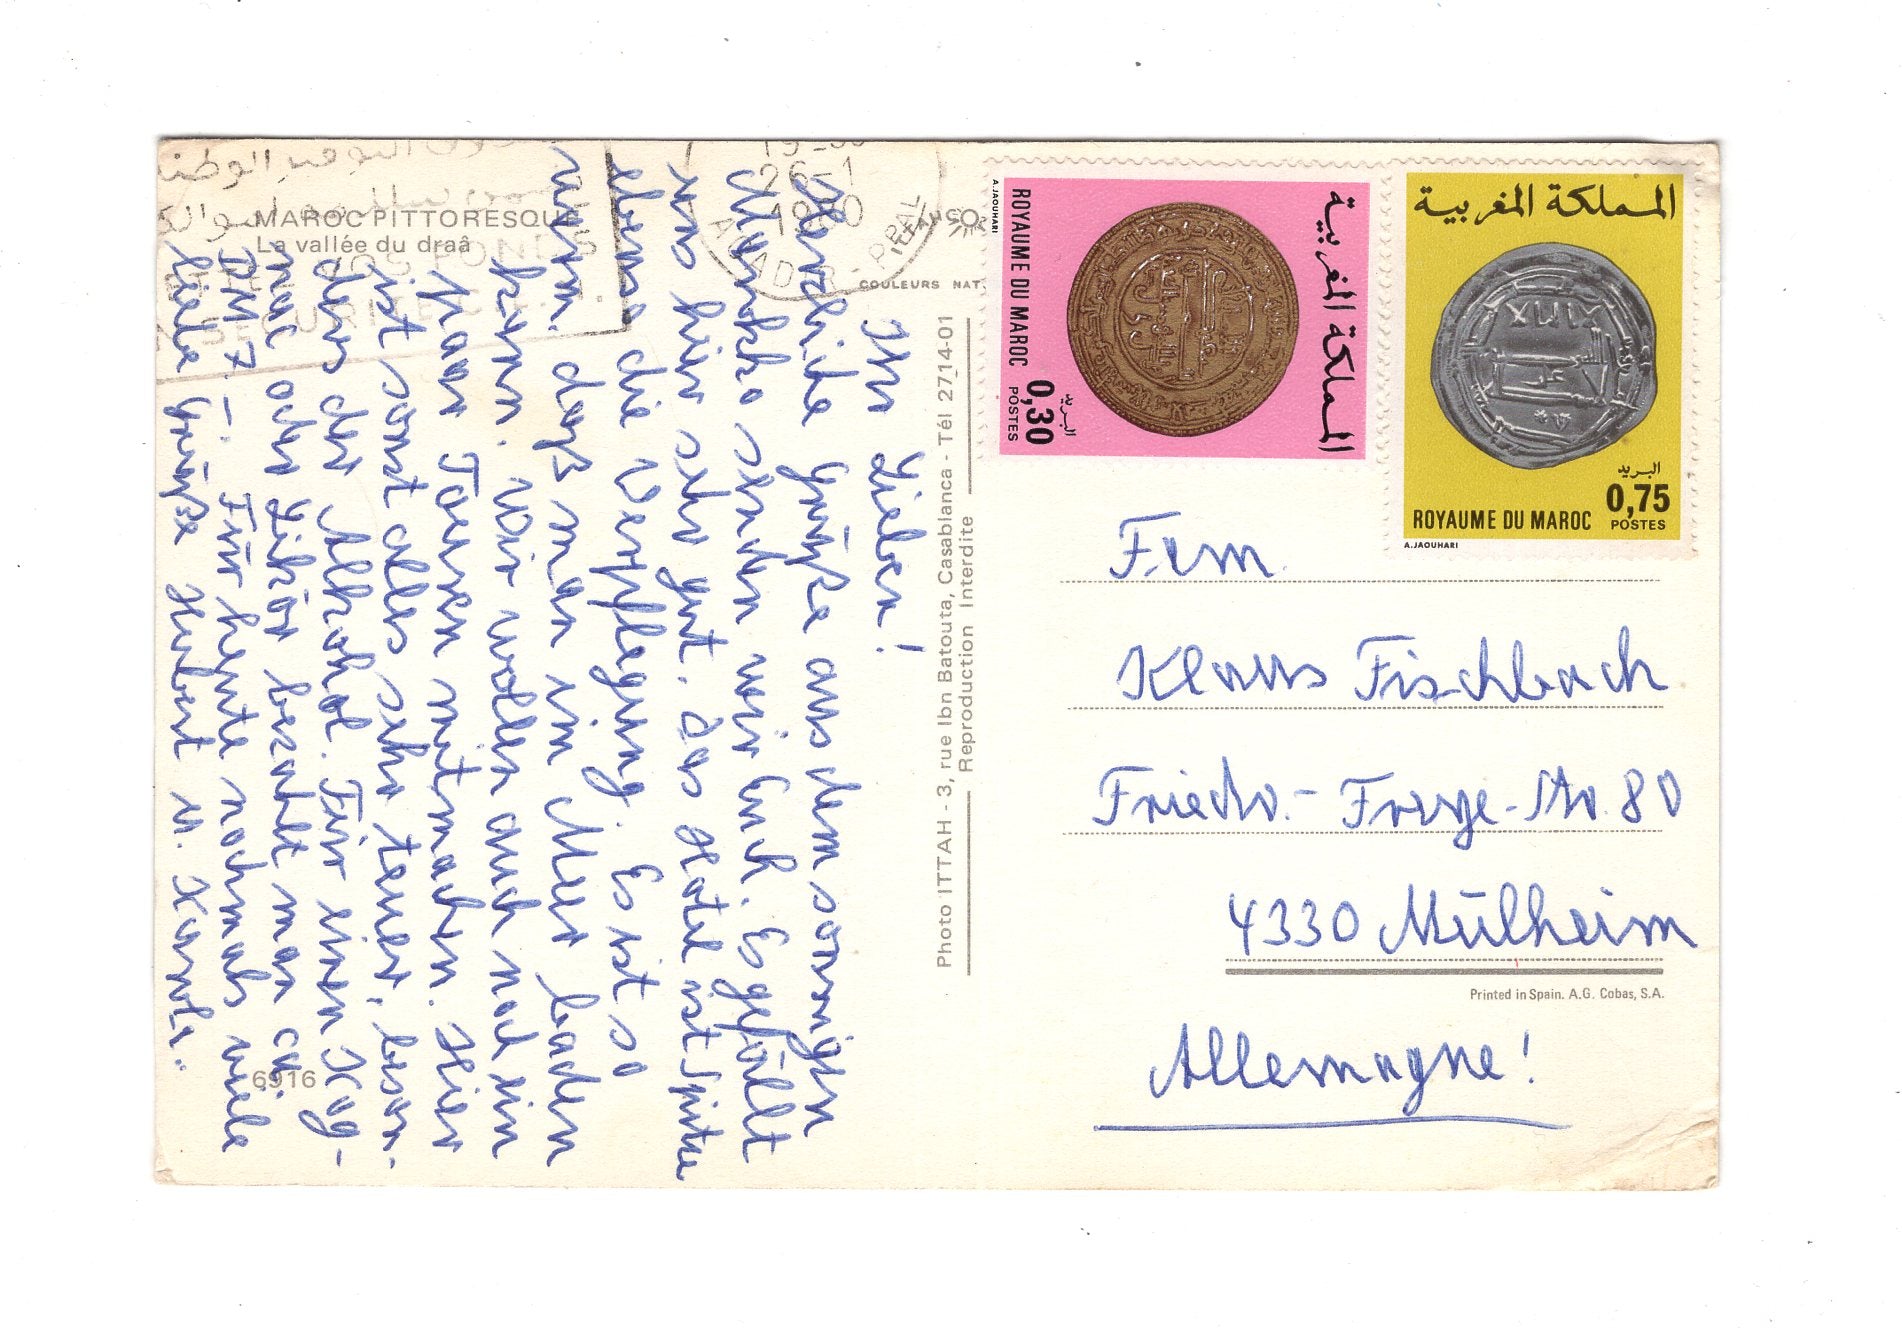 MAROC PITTORESQUE
La vallée du draâ
26-1
1980
AGADIR - PPAL
COULEURS NAT.
Ihr Lieben!
Herzliche Grüße aus dem sonnigen
Marokko senden wir Euch. Es gefällt
uns hier sehr gut. Das Hotel ist Spitze
ebenso die Verpflegung. Es ist so
warm, daß man im Meer baden
kann. Wir wollen auch noch ein
paar Touren mitmachen. Hier
ist sonst alles sehr teuer, beson-
ders der Alkohol. Für einen Kog-
nac oder Likör bezahlt man ca
DM 7.-. Für heute nochmals viele
liebe Grüße Hubert u. Karola.
6916
Photo ITTAH - 3, rue Ibn Batouta, Casablanca - Tél 27_14-01
Reproduction Interdite
المملكة المغربية
ROYAUME DU MAROC
البريد
0,30
POSTES
A.JAOUHARI
المملكة المغربية
البريد
0,75
ROYAUME DU MAROC POSTES
A.JAOUHARI
Fam.
Klaus Fischbach
Friedr.- Freye-Str. 80
4330 Mülheim
Printed in Spain. A.G. Cobas, S.A.
Allemagne!